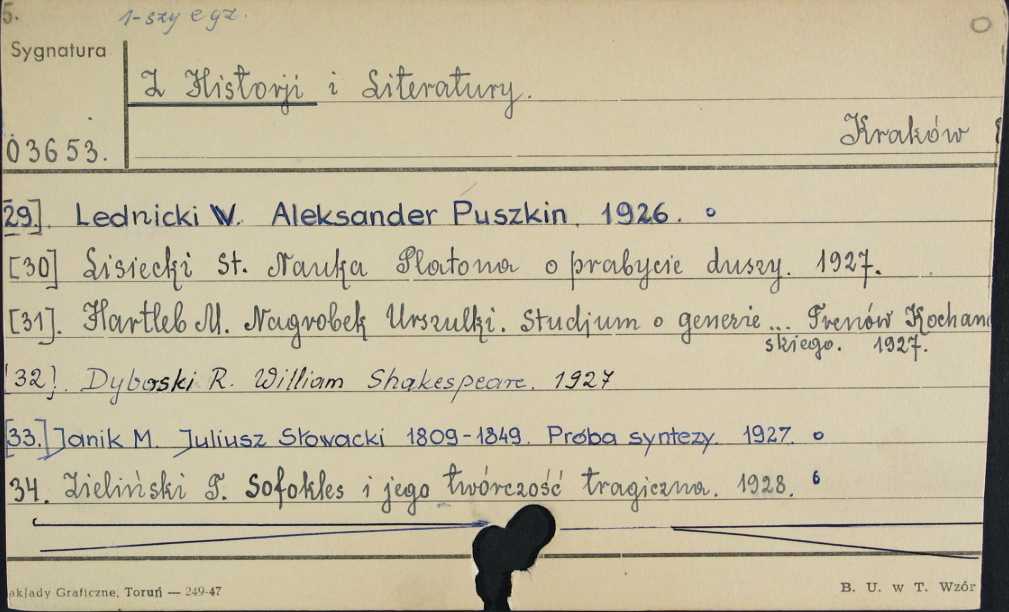 5.
1-szy egz.
Sygnatura
Z Historji i Literatury.
Kraków
03653.
[29]. Lednicki W. Aleksander Puszkin. 1926. o
[30] Lisiecki St. Nauka Platona o prabycie duszy. 1927.
[31]. Hartleb M. Nagrobek Urszulki. Studjum o genezie ... Trenów Kochanow
skiego. 1927.
[32]. Dyboski R. William Shakespeare. 1927
[33.] Janik M. Juliusz Słowacki 1809-1849. Próba syntezy. 1927. o
34. Zieliński T. Sofokles i jego twórczość tragiczna. 1928. 6
akłady Graficzne, Toruń — 249-47
B. U. w T. Wzór